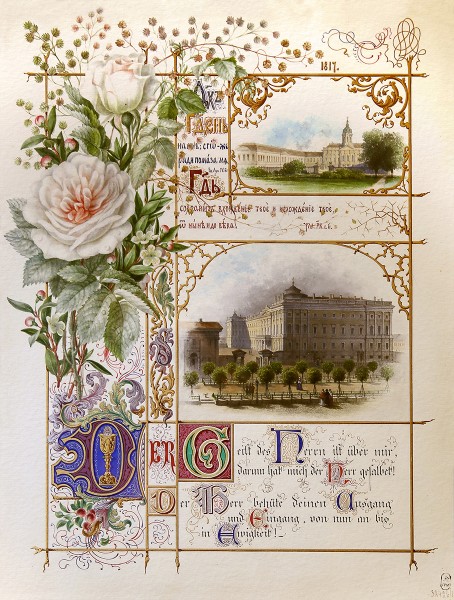 1817.
ДХЪ
ГДЕНЬ
на мнѣ: егѡ-же
ради помаза мѧ
ГДЬ
сохранитъ вхожденіе твое и исхожденіе твое,
ѿ нынѣ и до вѣка.
DER Geist des Herrn ist über mir,
darum hat mich der Herr gesalbet!
Der Herr behüte deinen Ausgang
und Eingang, von nun an bis
in Ewigkeit! –